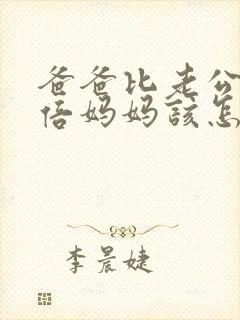 爸爸比老公
倍妈妈該怎
李晨婕